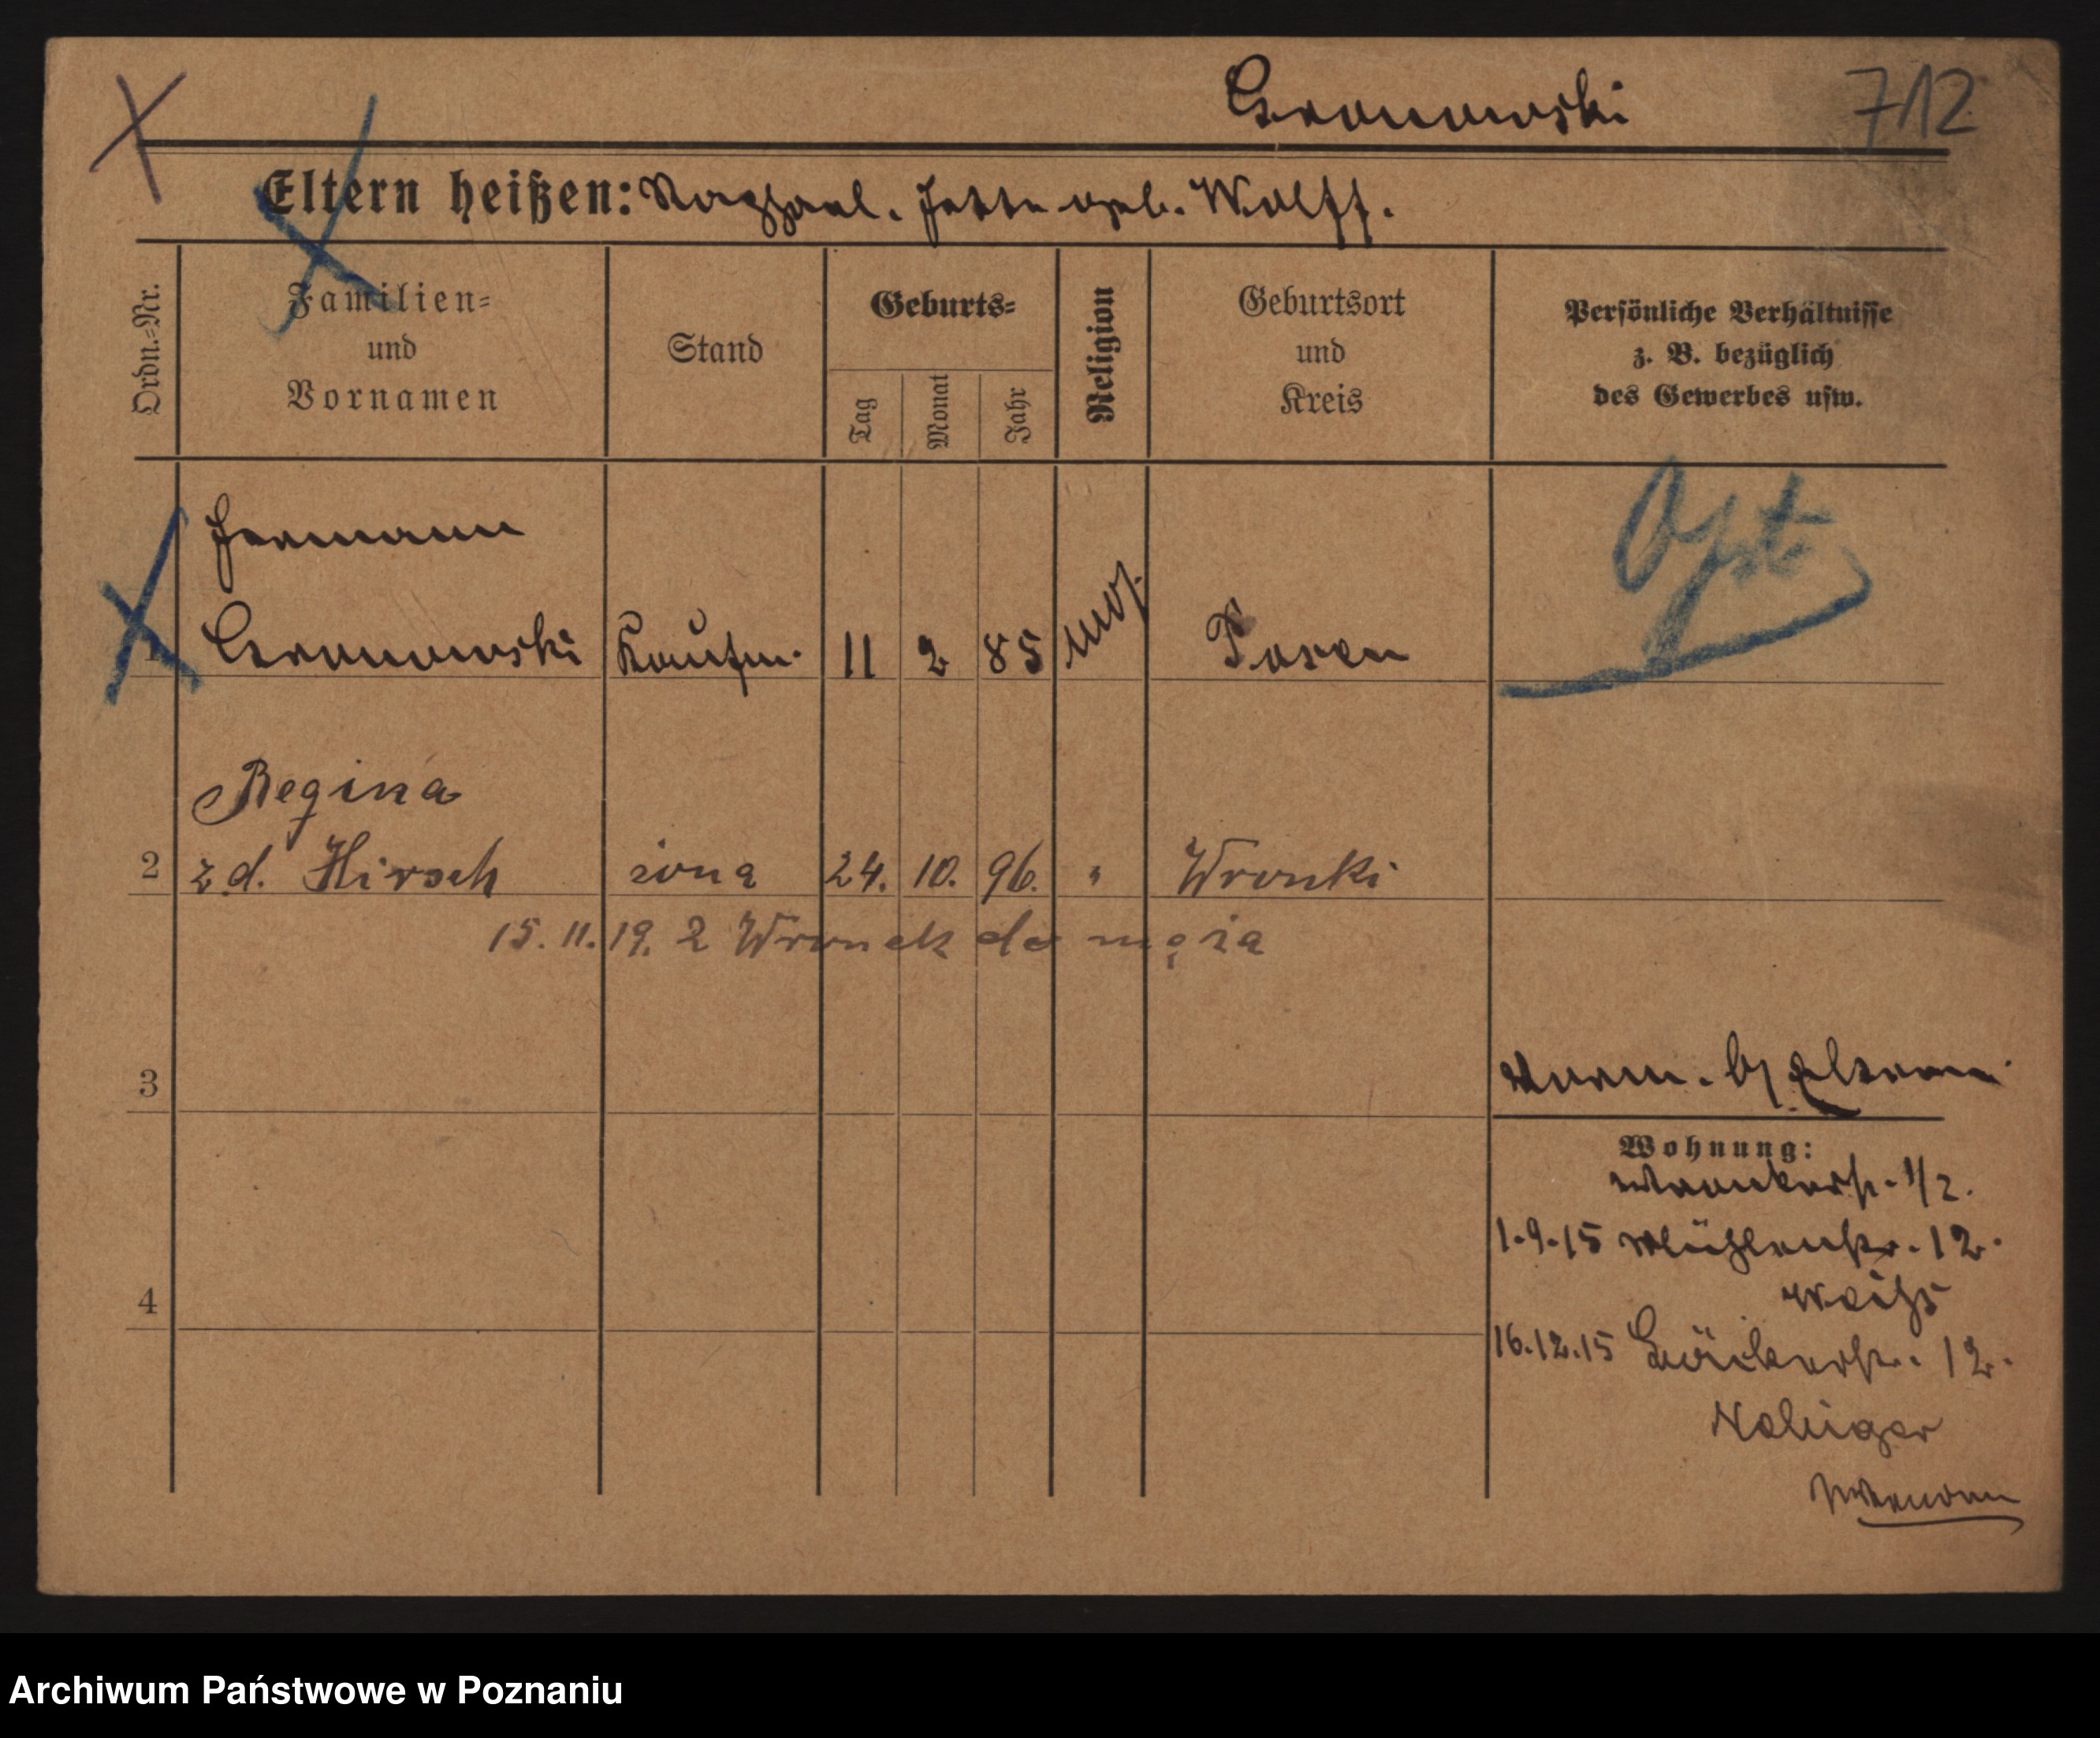 712
Eltern heißen: Raphael. Jette geb. Wolff.
Ordn.=Nr.
Familien=
und
Vornamen
Stand
Geburts=
Tag
Monat
Jahr
Religion
Geburtsort
und
Kreis
Persönliche Verhältnisse
z. B. bezüglich
des Gewerbes usw.
Hermann
1 Kaufm. 11 2 85 mos. Posen
Regina
2 z.d. Hirsch żona 24. 10. 96. " Wronki
15. 11. 19. z Wronek do męża
3
Wohnung:
1/2.
1.9.15 Mühlenstr. 12.
4
16.12.15 12.
Archiwum Państwowe w Poznaniu